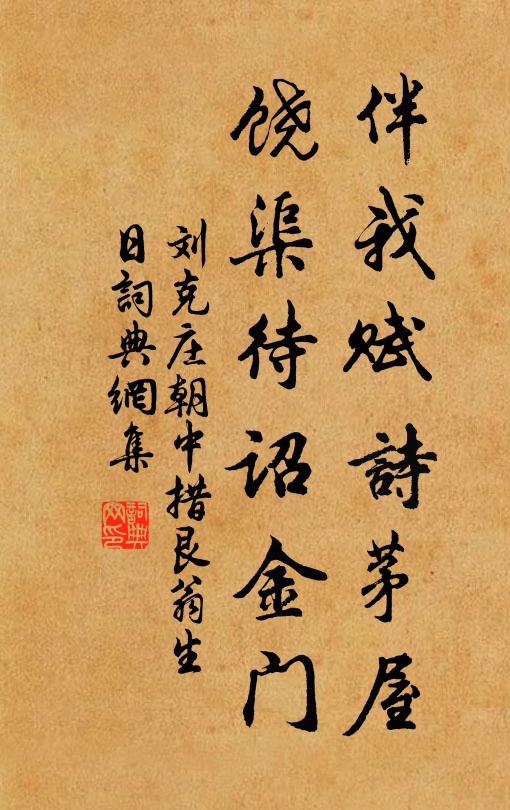 伴我赋詩茅屋
饶渠待诏金门
刘克庄朝中措艮翁生
日詞典網集
詞典
网印